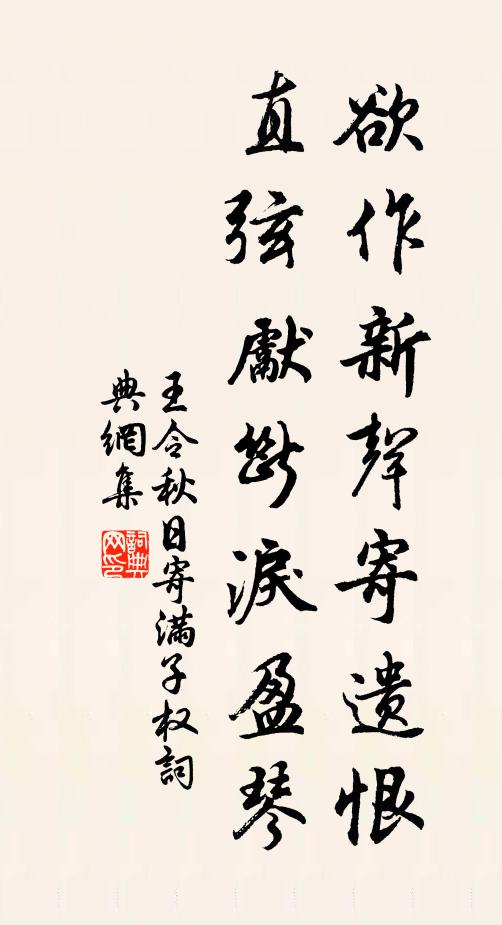 欲作新聲寄遺恨
直弦獻斷淚盈琴
王令秋日寄滿子权詞
典網集
詞典
网印